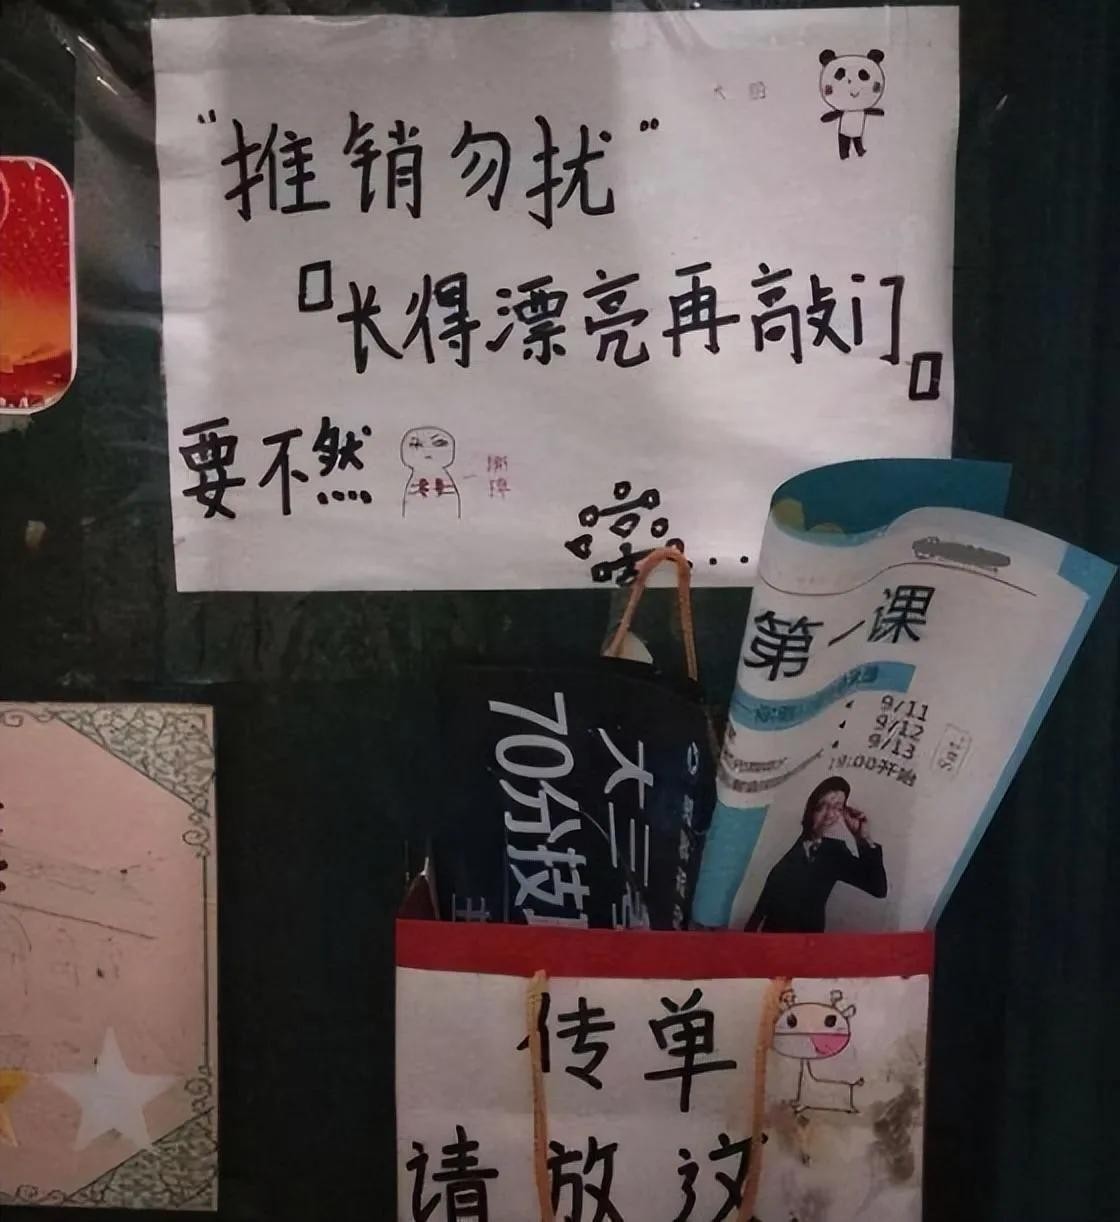 “推销勿扰”
『长得漂亮再敲门』
要不然
第一课
9/11
9/12
9/13
19:00开始
大三
70分技
传单
请放这